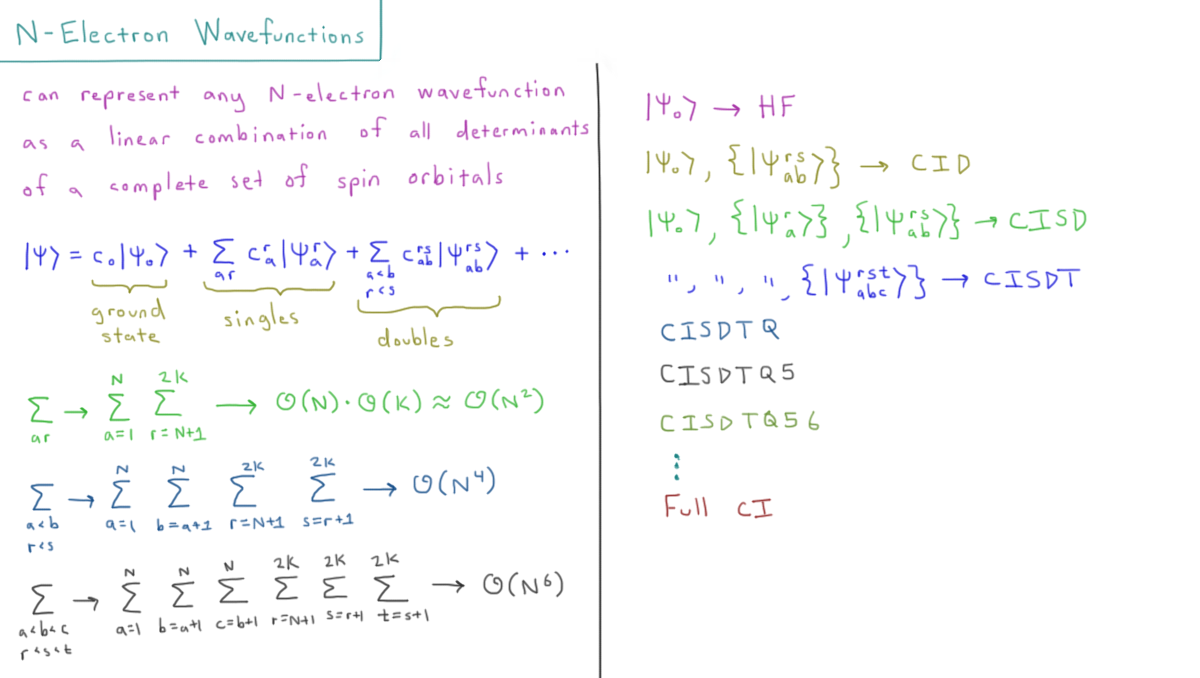 N-Electron Wavefunctions
can represent any N-electron wavefunction
as a linear combination of all determinants
of a complete set of spin orbitals
|Ψ⟩ = c₀|Ψ₀⟩ + Σ_{ar} c_a^r|Ψ_a^r⟩ + Σ_{a<b r<s} c_{ab}^{rs}|Ψ_{ab}^{rs}⟩ + ···
ground state
singles
doubles
Σ_{ar} → Σ_{a=1}^{N} Σ_{r=N+1}^{2K} → O(N)·O(K) ≈ O(N²)
Σ_{a<b r<s} → Σ_{a=1}^{N} Σ_{b=a+1}^{N} Σ_{r=N+1}^{2K} Σ_{s=r+1}^{2K} → O(N⁴)
Σ_{a<b<c r<s<t} → Σ_{a=1}^{N} Σ_{b=a+1}^{N} Σ_{c=b+1}^{N} Σ_{r=N+1}^{2K} Σ_{s=r+1}^{2K} Σ_{t=s+1}^{2K} → O(N⁶)
|Ψ₀⟩ → HF
|Ψ₀⟩, {|Ψ_{ab}^{rs}⟩} → CID
|Ψ₀⟩, {|Ψ_a^r⟩}, {|Ψ_{ab}^{rs}⟩} → CISD
", ", ", {|Ψ_{abc}^{rst}⟩} → CISDT
CISDTQ
CISDTQ5
CISDTQ56
⋮
Full CI